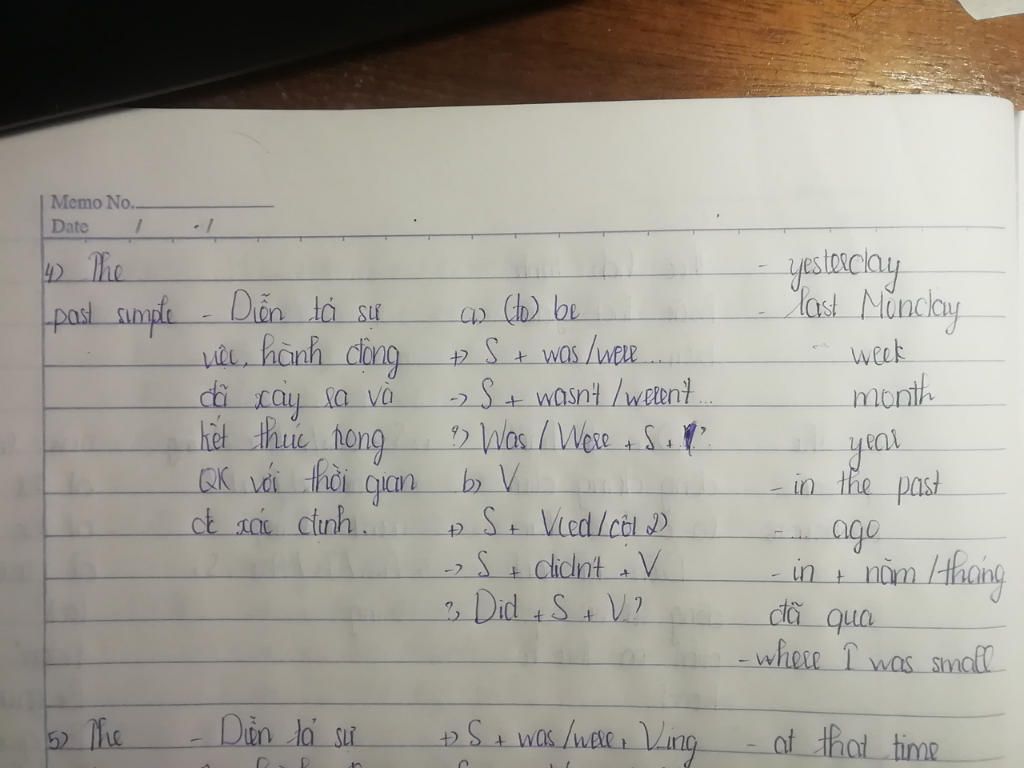 Memo No.
Date / . /
4) The - yesterday
past simple - Diễn tả sự a) (to) be - last Monday
việc, hành động +) S + was/were... week
đã xảy ra và -) S + wasn't/weren't... month
kết thúc trong ?) Was/Were + S + ? year
QK với thời gian b) V - in the past
đc xác định. +) S + V(ed/cột 2) -... ago
-) S + didn't + V - in + năm/tháng
?) Did + S + V? đã qua
- where I was small
5) The - Diễn tả sự +) S + was/were + Ving - at that time